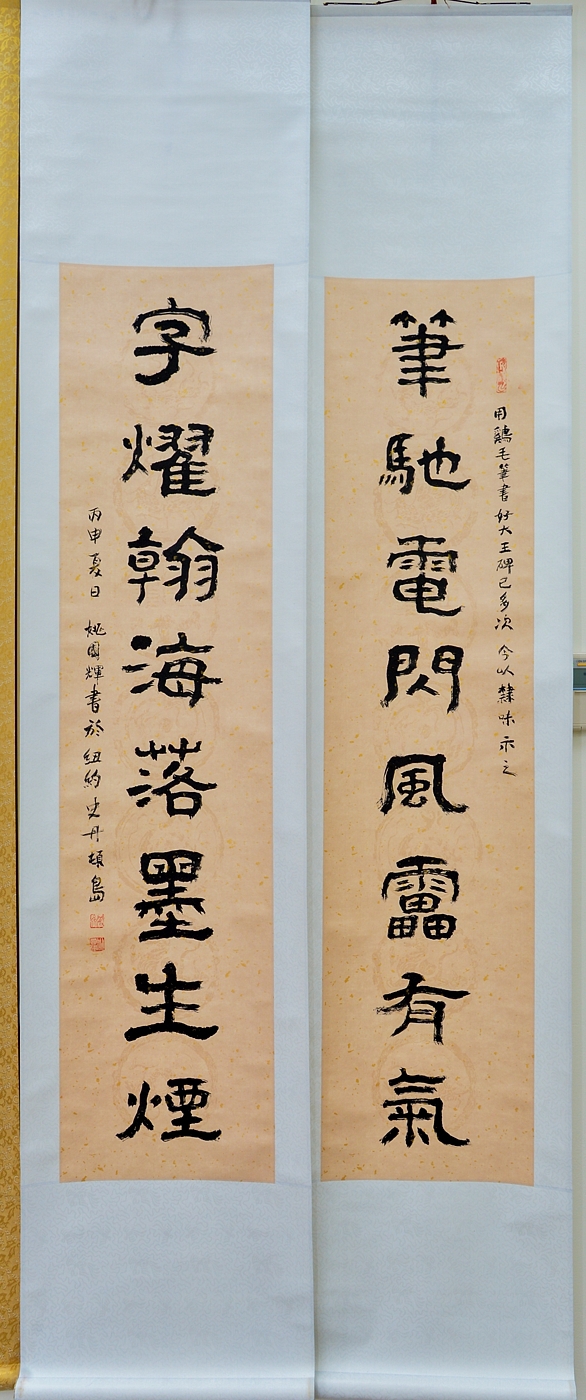 用鷄毛筆書好大王碑已多次今以隸味示之
筆馳電閃風靁有氣
字耀翰海落墨生煙
丙申夏日 姚國輝書於紐約史丹頓島